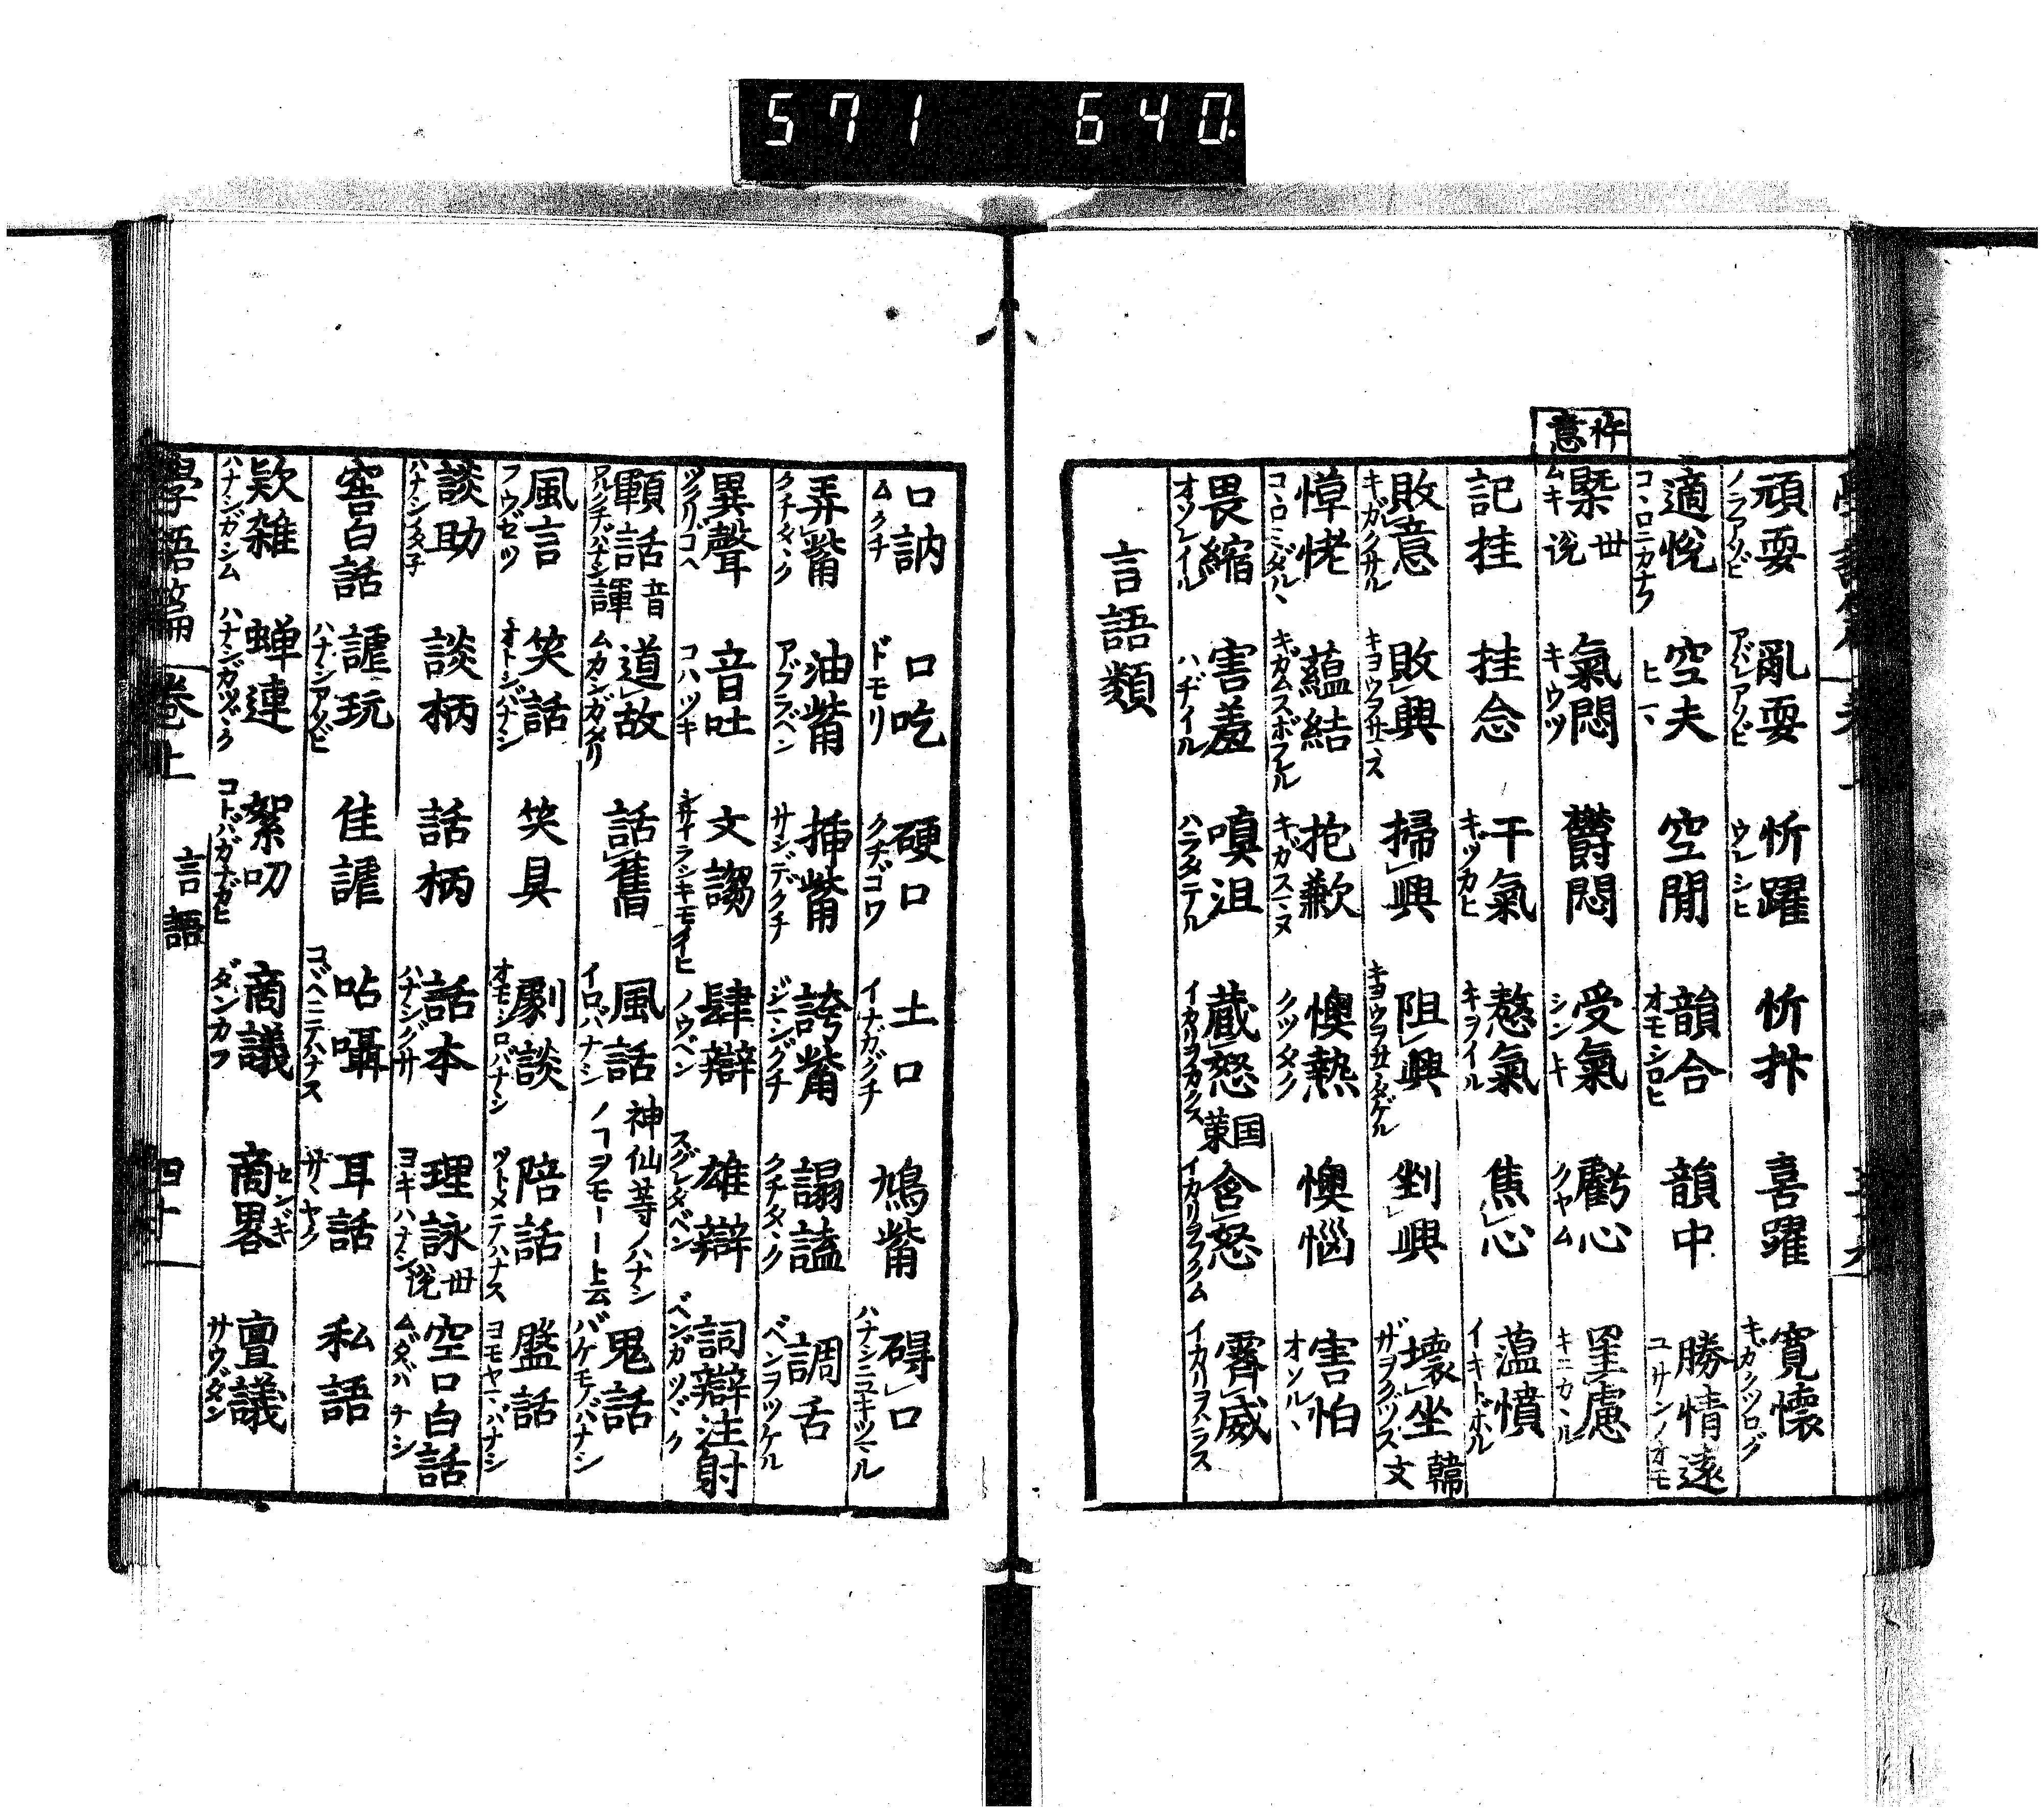 571 640.
頑耍 ノラアソビ 亂耍 アバレアソビ 忻躍 ウレシヒ 忻抃 喜躍 寛懐 キガクツログ
適悦 コヽロニカナフ 空夫 ヒマ 空閒 韻合 オモシロヒ 韻中 勝情遠
忤意
槩 世説 ムキ 氣悶 キウツ 欝悶 受氣 シンキ 虧心 クヤム 罣慮 キニカヽル
記挂 挂念 干氣 キヅカヒ 憗氣 キヲイル 焦心 薀憤 イキドホル
敗意 キガクサル 敗興 キヨウヲサマス 掃興 阻興 キヨウヲサマタゲル 剉興 壊坐 韓文 ザヲクヅス
愇恅 コヽロミダルヽ 蘊結 キガムスボフレル 抱歉 キガスマヌ 懊熱 クツタク 懊惱 害怕 オソルヽ
畏縮 オソレイル 害羞 ハヂイル 嗔沮 ハラタテル 蔵怒 国策 イカリヲカクス 含怒 イカリヲフクム 霽威 イカリヲハラス
言語類
口訥 ムクチ 口吃 ドモリ 硬口 クチゴワ 土口 イナカグチ 鴆觜 碍口 ハナシニユキツマル
弄觜 クチタヽク 油觜 アブラベン 挿觜 サシデクチ 誇觜 ジマングチ 謆謆 クチタヽク 調舌 ベンヲツケル
異聲 ツクリゴヘ 音吐 コハツキ 文謅 シサイラシキモノイヒ 肆辯 ノウベン 雄辯 スグレタベン 詞辯注射 ベンガツヾク
顐話 音諢 カルクチバナシ 道故 ムカシガタリ 話舊 風話 イロバナシ 神仙等ノハナシノヿヲモ一ト云 鬼話 バケモノバナシ
風言 フウゼツ 笑話 オトシバナシ 笑具 劇談 オモシロバナシ 陪話 ツトメテハナス 盤話 ヨモヤマバナシ
談助 ハナシノタネ 談柄 話柄 話本 ハナシグサ 理詠 世説 ヨキハナシ 空口白話 ムダバナシ
害白話 謔玩 ハナシアソビ 佳謔 呫囁 コゴヘニテハナス 耳話 サヽヤク 私語
欵雑 ハナシガシム 蝉連 ハナシガツヾク 絮叨 コトバガナガヒ 商議 ダンカフ 商畧 センギ 亶議 サウダン
學語篇 巻上 言語 四十一